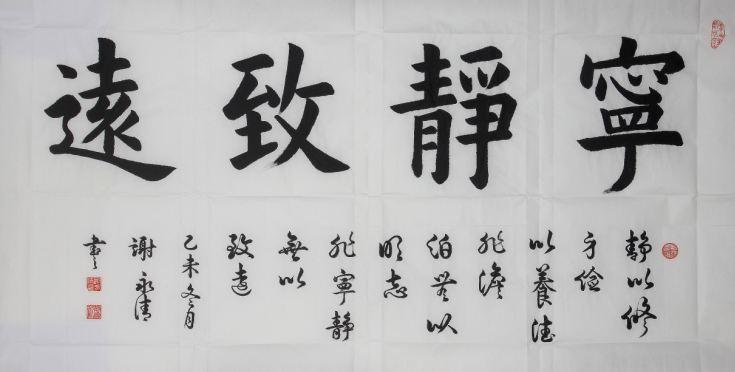 寧靜致遠
静以修
身儉
以養德
非澹
泊無以
明志
非寧靜
無以
致遠
乙未冬月
謝永清
書